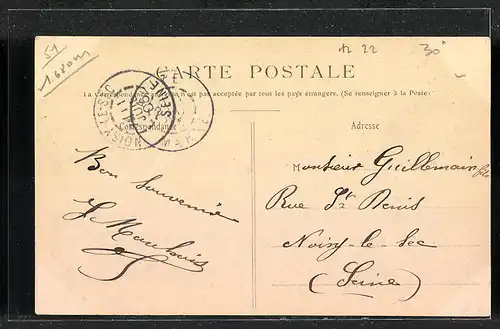 51
1.68 am
12 22
30
CARTE POSTALE
La Correspondance au recto n'est pas acceptée par tous les pays étrangers. (Se renseigner à la Poste)
NOISY-LE-SEC
SEINE
Correspondance
Adresse
Bon souvenir
Monsieur Guillemain fils
Rue St Denis
Noisy-le-Sec
(Seine)